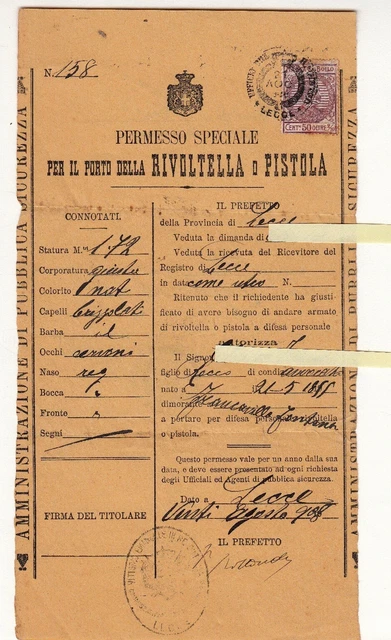 N. 158
PERMESSO SPECIALE
PER IL PORTO DELLA RIVOLTELLA O PISTOLA
BOLLO
CENT. 50
LECCE
AMMINISTRAZIONE DI PUBBLICA SICUREZZA
CONNOTATI.
Statura M. 1.72
Corporatura giusta
Colorito nat
Capelli brizzolati
Barba id
Occhi cerconi
Naso reg
Bocca "
Fronte "
Segni
FIRMA DEL TITOLARE
IL PREFETTO
della Provincia di Lecce
Veduta la dimanda di
Veduta la ricevuta del Ricevitore del
Registro di Lecce
in data come utro N.
Ritenuto che il richiedente ha giusti-
ficato di avere bisogno di andare armato
di rivoltella o pistola a difesa personale
Autorizza
Il Signor
figlio di di condiz.
nato a 21-5
dimorante Francavilla Fontana
a portare per difesa personale rivoltella
o pistola.
Questo permesso vale per un anno dalla sua
data, e deve essere presentato ad ogni richiesta
degli Ufficiali ed Agenti di pubblica sicurezza.
Dato a Lecce
Venti Agosto 908
IL PREFETTO
LECCE
AMMINISTRAZIONE DI PUBBLICA SICUREZZA